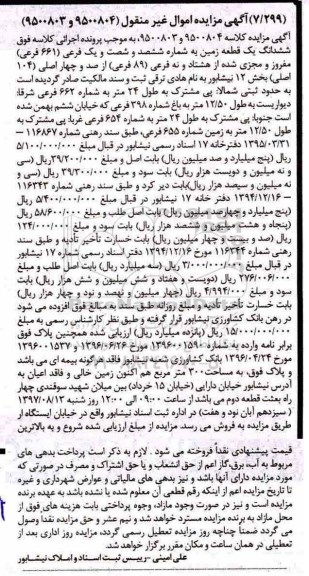 (۷/۲۹۹) آگهی مزایده اموال غیر منقول (۹۵۰۰۸۰۴ و ۹۵۰۰۸۰۳)
آگهی مزایده کلاسه ۹۵۰۰۸۰۴ و ۹۵۰۰۸۰۳، به موجب پرونده اجرائی کلاسه فوق
ششدانگ یک قطعه زمین به شماره ششصد و شصت و یک فرعی (۶۶۱ فرعی)
مفروز و مجزی شده از هشتاد و نه فرعی (۸۹ فرعی) از صد و چهار اصلی (۱۰۴
اصلی) بخش ۱۲ نیشابور به نام هادی ترقی ثبت و سند مالکیت صادر گردیده است
به حدود ثبتی شمالا: پی مشترک به طول ۲۴ متر به شماره ۶۶۲ فرعی شرقا:
دیواریست به طول ۱۲/۵۰ متر به باغ شماره ۳۹۸ فرعی که خیابان ششم بهمن شده
است جنوبا: پی مشترک به طول ۲۴ متر به شماره ۶۵۴ فرعی غربا پی مشترک به
طول ۱۲/۵۰ متر به زمین شماره ۶۵۵ فرعی، طبق سند رهنی شماره ۱۱۶۸۶۷ –
۱۳۹۵/۰۳/۳۱ دفترخانه ۱۷ اسناد رسمی نیشابور در قبال مبلغ ۵/۱۰۰/۰۰۰/۰۰۰
ریال (پنج میلیارد و صد میلیون ریال) بابت اصل و مبلغ ۳۹/۲۰۰/۰۰۰ریال (سی
و نه میلیون و دویست هزار ریال) بابت سود و مبلغ ۳۹/۳۰۰/۰۰۰ ریال (سی و
نه میلیون و سیصد هزار ریال)بابت دیر کرد و طبق سند رهنی شماره ۱۱۶۳۴۳
– ۱۳۹۴/۱۲/۱۶ دفتر خانه ۱۷ نیشابور در قبال مبلغ ۵/۴۰۰/۰۰۰/۰۰۰ ریال
(پنج میلیارد و چهارصد میلیون ریال) بابت اصل طلب و مبلغ ۵۸/۶۰۰/۰۰۰ ریال
(پنجاه و هشت میلیون و ششصد هزار ریال) بابت سود و مبلغ ۱۲۴/۰۰۰/۰۰۰
ریال (صد و بیست و چهار میلیون ریال) بابت خسارت تأخیر تأدیه و طبق سند
رهنی شماره ۱۱۶۳۴۴ مورخ ۱۳۹۴/۱۲/۱۶ دفتر اسناد رسمی شماره ۱۷ نیشابور
در قبال مبلغ ۳/۰۰۰/۰۰۰/۰۰۰ ریال (سه میلیارد ریال) بابت اصل طلب و مبلغ
۲۷۶/۰۰۶/۰۰۰ ریال (دویست و هفتاد و شش میلیون و شش هزار ریال) بابت
سود و مبلغ ۴/۹۹۴/۰۰۰ ریال (چهار میلیون و نهصد و نود و چهار هزار ریال)
بابت خسارت تأخیر تأدیه و مبلغ روزانه طبق سند به مبالغ فوق افزوده می شود
در رهن بانک کشاورزی نیشابور قرار گرفته و طبق نظر کارشناس رسمی به مبلغ
۱۵/۰۰۰/۰۰۰/۰۰۰ ریال (پانزده میلیارد ریال) ارزیابی شده همچنین پلاک فوق
برابر نامه وارده به شماره ۱۳۹۶۰۰۱۵۹۰ مورخ ۱۳۹۶/۰۶/۲۶ و ۱۳۹۶۰۰۵۳۷
مورخ ۱۳۹۶/۰۴/۲۴ بانک کشاورزی شعبه نیشابور فاقد هرگونه بیمه ای می باشد
و پلاک فوق، به مساحت۳۰۰ متر مربع هم اکنون زمین خالی و فاقد اعیان به
آدرس نیشابور خیابان دارایی (خیابان ۱۵ خرداد) بین میلان شهید سوقندی چهار
راه بعثت قطعه دوم می باشد از ساعت ۰۹:۰۰ الی ۱۲:۰۰ روز شنبه ۱۳۹۷/۰۸/۱۳
( سیزدهم آبان نود و هفت) در اداره ثبت اسناد نیشابور واقع در خیابان ایستگاه از
طریق مزایده به فروش می رسد. مزایده از مبلغ ارزیابی شده شروع و به بالاترین
قیمت پیشنهادی نقداً فروخته می شود . لازم به ذکر است پرداخت بدهی های
مربوط به آب، برق،گاز اعم از حق انشعاب و یا حق اشتراک و مصرف در صورتی که
مورد مزایده دارای آنها باشد و نیز بدهی های مالیاتی و عوارض شهرداری و غیره
تا تاریخ مزایده اعم از اینکه رقم قطعی آن معلوم شده یا نشده باشد به عهده برنده
مزایده است و نیز در صورت وجود مازاد، وجوه پرداختی بابت هزینه های فوق از
محل مازاد به برنده مزایده مسترد خواهد شد و نیم عشر و حق مزایده نقدا وصول
می گردد ضمناً چنانچه روز مزایده تعطیل رسمی گردد، مزایده روز اداری بعد از
تعطیلی در همان ساعت و مکان مقرر برگزار خواهد شد.
علی امینی –رییس ثبت اسناد و املاک نیشابور